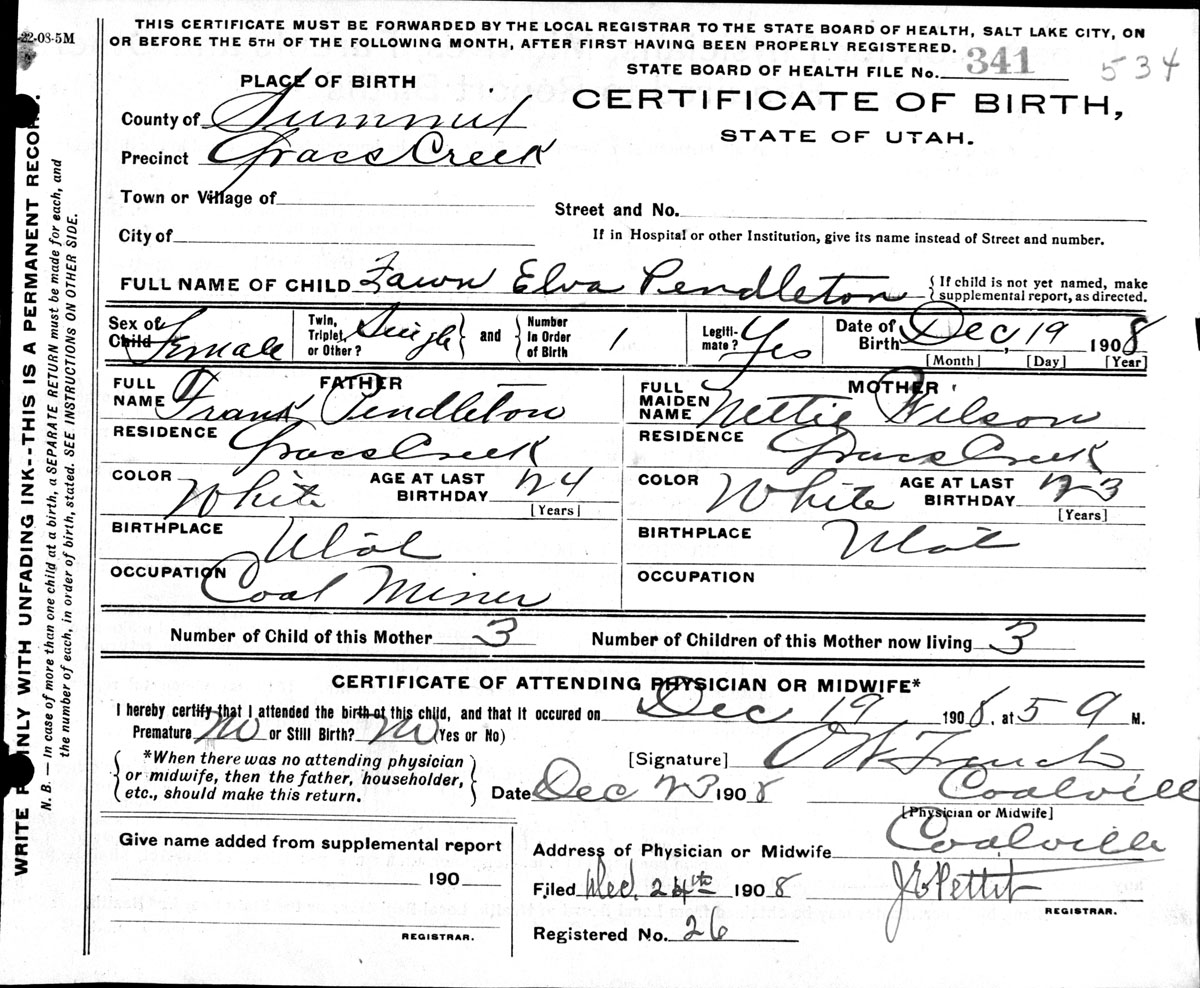 22-08-5M
THIS CERTIFICATE MUST BE FORWARDED BY THE LOCAL REGISTRAR TO THE STATE BOARD OF HEALTH, SALT LAKE CITY, ON
OR BEFORE THE 5TH OF THE FOLLOWING MONTH, AFTER FIRST HAVING BEEN PROPERLY REGISTERED.
STATE BOARD OF HEALTH FILE No. 341 534
PLACE OF BIRTH
CERTIFICATE OF BIRTH,
STATE OF UTAH.
County of Summit
Precinct Grass Creek
Town or Village of
Street and No.
City of
If in Hospital or other Institution, give its name instead of Street and number.
FULL NAME OF CHILD Fawn Elva Pendleton { If child is not yet named, make
supplemental report, as directed.
Sex of Child Female
Twin, Triplet, or Other? Single } and { Number in Order of Birth 1
Legiti- mate? Yes
Date of Birth Dec, 19 1908
[Month] [Day] [Year]
FATHER
FULL NAME Frank Pendleton
MOTHER
FULL MAIDEN NAME Nettie Wilson
RESIDENCE Grass Creek
RESIDENCE Grass Creek
COLOR White AGE AT LAST BIRTHDAY 24
[Years]
COLOR White AGE AT LAST BIRTHDAY 23
[Years]
BIRTHPLACE Utah
BIRTHPLACE Utah
OCCUPATION Coal Miner
OCCUPATION
Number of Child of this Mother 3 Number of Children of this Mother now living 3
CERTIFICATE OF ATTENDING PHYSICIAN OR MIDWIFE*
I hereby certify that I attended the birth of this child, and that it occured on Dec 19 1908, at 5 9 M.
Premature No or Still Birth? No (Yes or No)
{ *When there was no attending physician
or midwife, then the father, householder,
etc., should make this return. }
[Signature] O W French
Date Dec 23 1908 Coalvill
[Physician or Midwife]
Give name added from supplemental report
190
REGISTRAR.
Address of Physician or Midwife Coalville
Filed Dec. 24th 1908 J E Pettit
REGISTRAR.
Registered No. 26
WRITE PLAINLY WITH UNFADING INK--THIS IS A PERMANENT RECORD.
N. B. — In case of more than one child at a birth, a SEPARATE RETURN must be made for each, and
the number of each, in order of birth, stated. SEE INSTRUCTIONS ON OTHER SIDE.